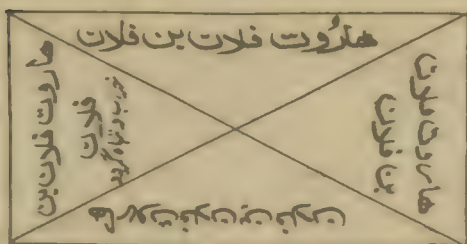 هارُوت فلان بن فلان
هاروت فلان
بن فلان
هاروت فلان بن
فلان
تباه گردد